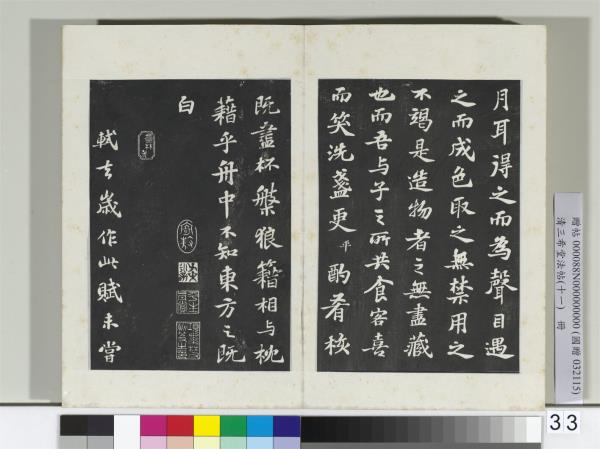 月耳得之而為聲目遇
之而成色取之無禁用之
不竭是造物者之無盡藏
也而吾與子之所共食客喜
而笑洗盞更平酌肴核
既盡杯槃狼籍相與枕
藉乎舟中不知東方之既
白
軾去歲作此賦未嘗
贈帖 000088N000000000 (國贈 032115)
清三希堂法帖(十一) 冊
33